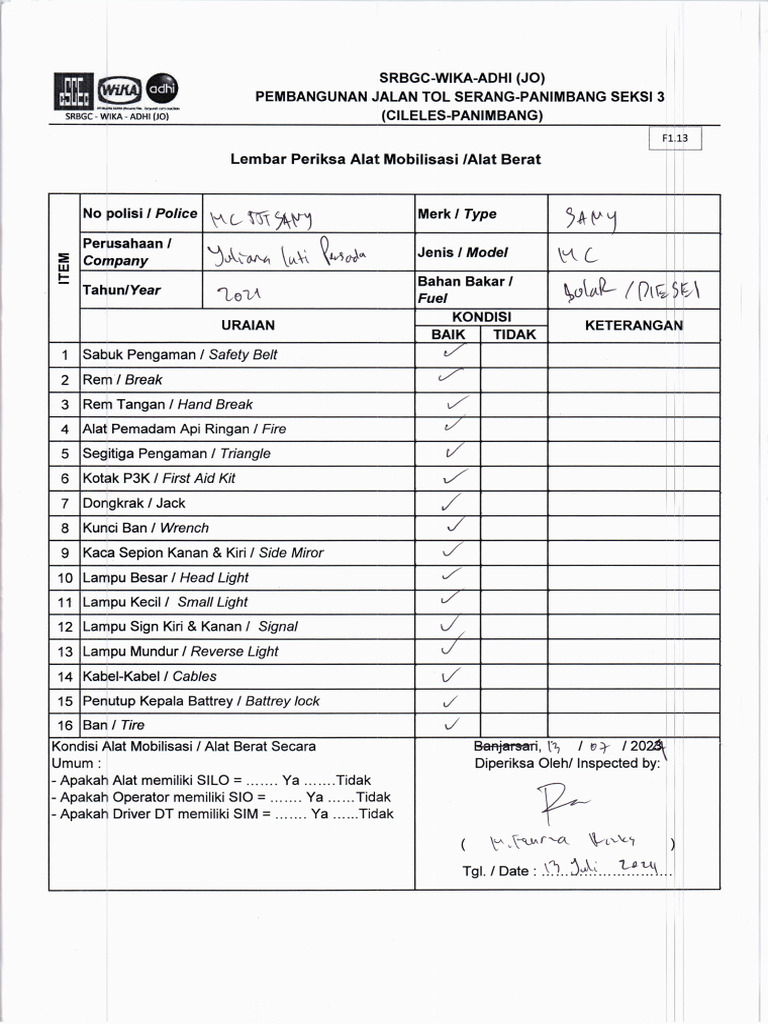 SRBGC-WIKA-ADHI (JO)
PEMBANGUNAN JALAN TOL SERANG-PANIMBANG SEKSI 3
(CILELES-PANIMBANG)
WIKA adhi
SRBGC - WIKA - ADHI (JO)
F1.13
Lembar Periksa Alat Mobilisasi /Alat Berat
ITEM
No polisi / Police MC SANY Merk / Type SANY
Perusahaan / Company Yuliana Jati Persada Jenis / Model MC
Tahun/Year 2021 Bahan Bakar / Fuel SOLAR / DIESEL
URAIAN KONDISI KETERANGAN
BAIK TIDAK
1 Sabuk Pengaman / Safety Belt ✓
2 Rem / Break ✓
3 Rem Tangan / Hand Break ✓
4 Alat Pemadam Api Ringan / Fire ✓
5 Segitiga Pengaman / Triangle ✓
6 Kotak P3K / First Aid Kit ✓
7 Dongkrak / Jack ✓
8 Kunci Ban / Wrench ✓
9 Kaca Sepion Kanan & Kiri / Side Miror ✓
10 Lampu Besar / Head Light ✓
11 Lampu Kecil / Small Light ✓
12 Lampu Sign Kiri & Kanan / Signal ✓
13 Lampu Mundur / Reverse Light ✓
14 Kabel-Kabel / Cables ✓
15 Penutup Kepala Battrey / Battrey lock ✓
16 Ban / Tire ✓
Kondisi Alat Mobilisasi / Alat Berat Secara
Umum :
- Apakah Alat memiliki SILO = ....... Ya .......Tidak
- Apakah Operator memiliki SIO = ....... Ya ......Tidak
- Apakah Driver DT memiliki SIM = ....... Ya ......Tidak
Banjarsari, 13 / 07 / 2024
Diperiksa Oleh/ Inspected by:
( M. )
Tgl. / Date : 13 Juli 2024